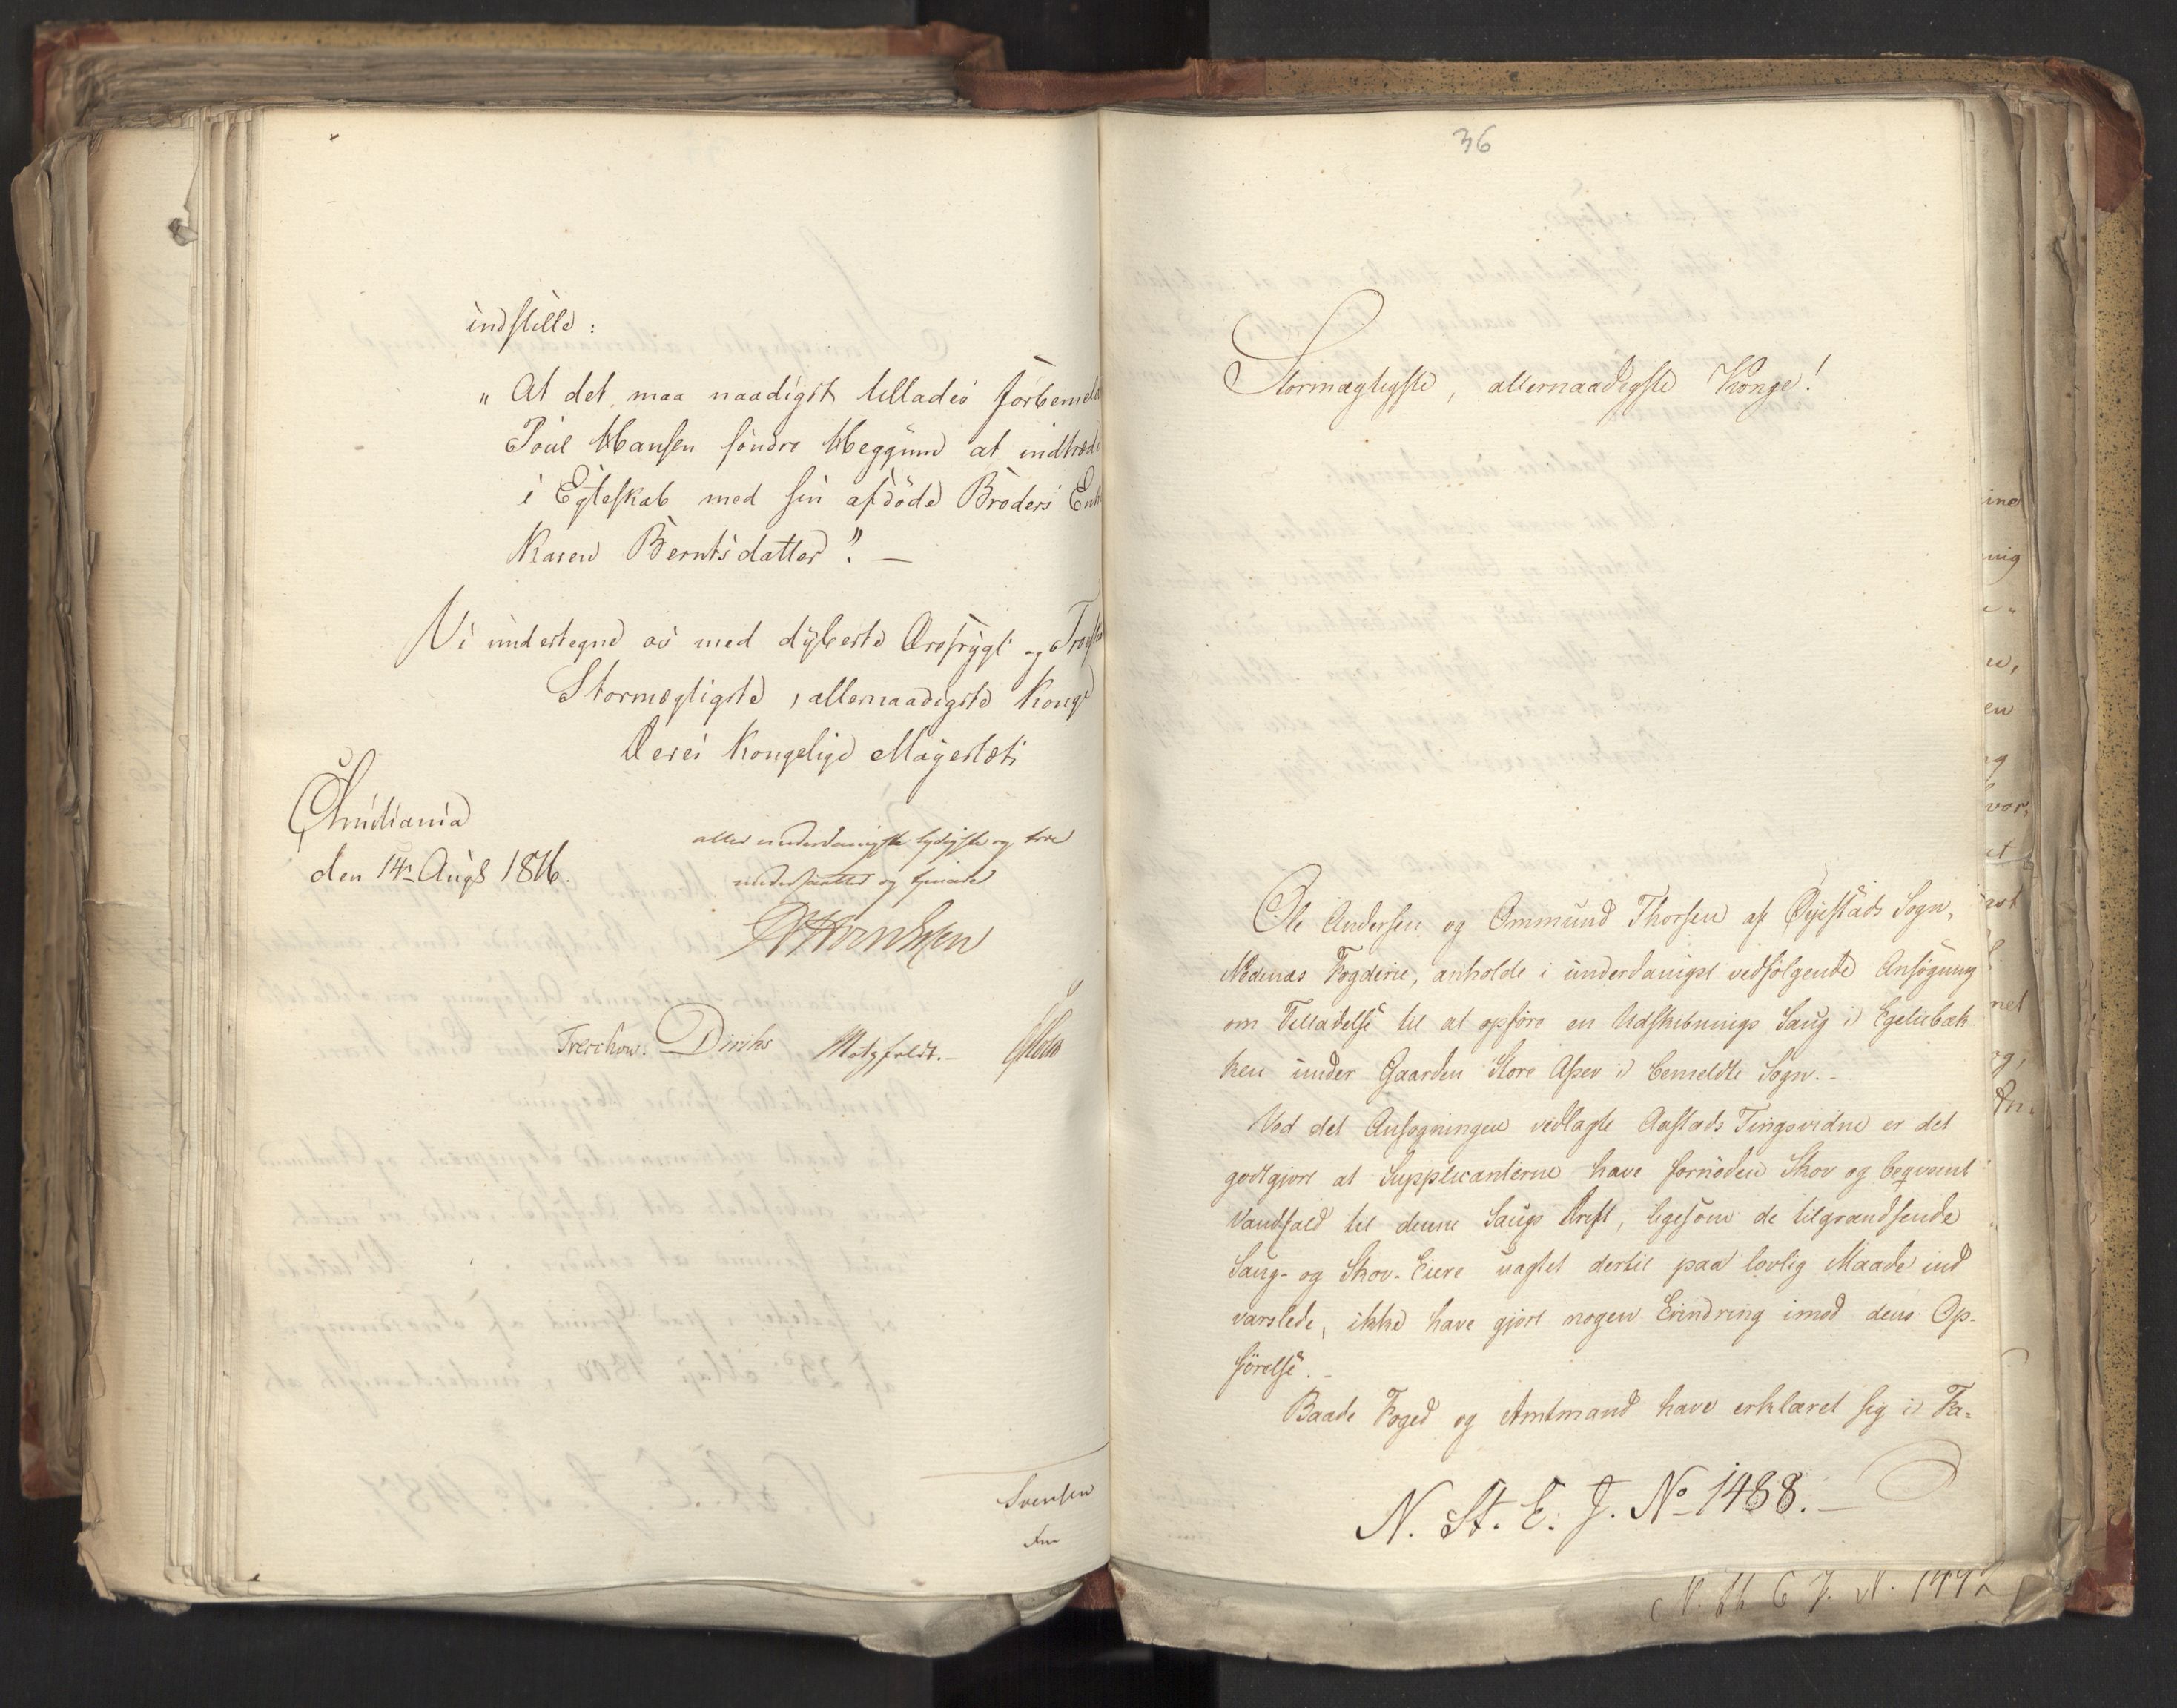 indstille:
„At det maa naadigst tillades forbemeld
Poul Hansen söndre Heggum at indtræde
i Egteskab med sin afdöde Broders Enk
Karen Berntsdatter". —
Vi undertegne os med dybeste Ærefrygt og Trosk
Stormægtigste, allernaadigste Konge
Deres Kongelige Majestæts
Christiania
den 14de Augs 1816.
allerunderdanigste lydigste og troe
undersaatter og tjenere
Trescow. Diriks Motzfeldt.—
Svensen
36
Stormægtigste, allernaadigste Konge!
Ole Andersen og Ommund Thorsen af Öyestads Sogn,
Nedenæs Fogderie, anholde i underdanigst vedfölgende Ansögning
om Tilladelse til at opföre en Udskibnings Saug i Egeliebæk
ken under Gaarden Store Assev i bemeldte Sogn.-
Ved det Ansögningen vedlagte Aastæds Tingsvidne er det
godtgjort at Supplicanterne have fornöden Skov og beqvemt
Vandfald til denne Saugs Drift, ligesom de tilgrændsende
Saug- og Skov-Eiere uagtet dertil paa lovlig Maade ind
varslede, ikke have gjort nogen Erindring imod dens Op-
förelse.-
Baade Foged og Amtmand have erklæret sig i Fa-
N. St. E. J. No 1488.—
N. St. E J. N. 1492